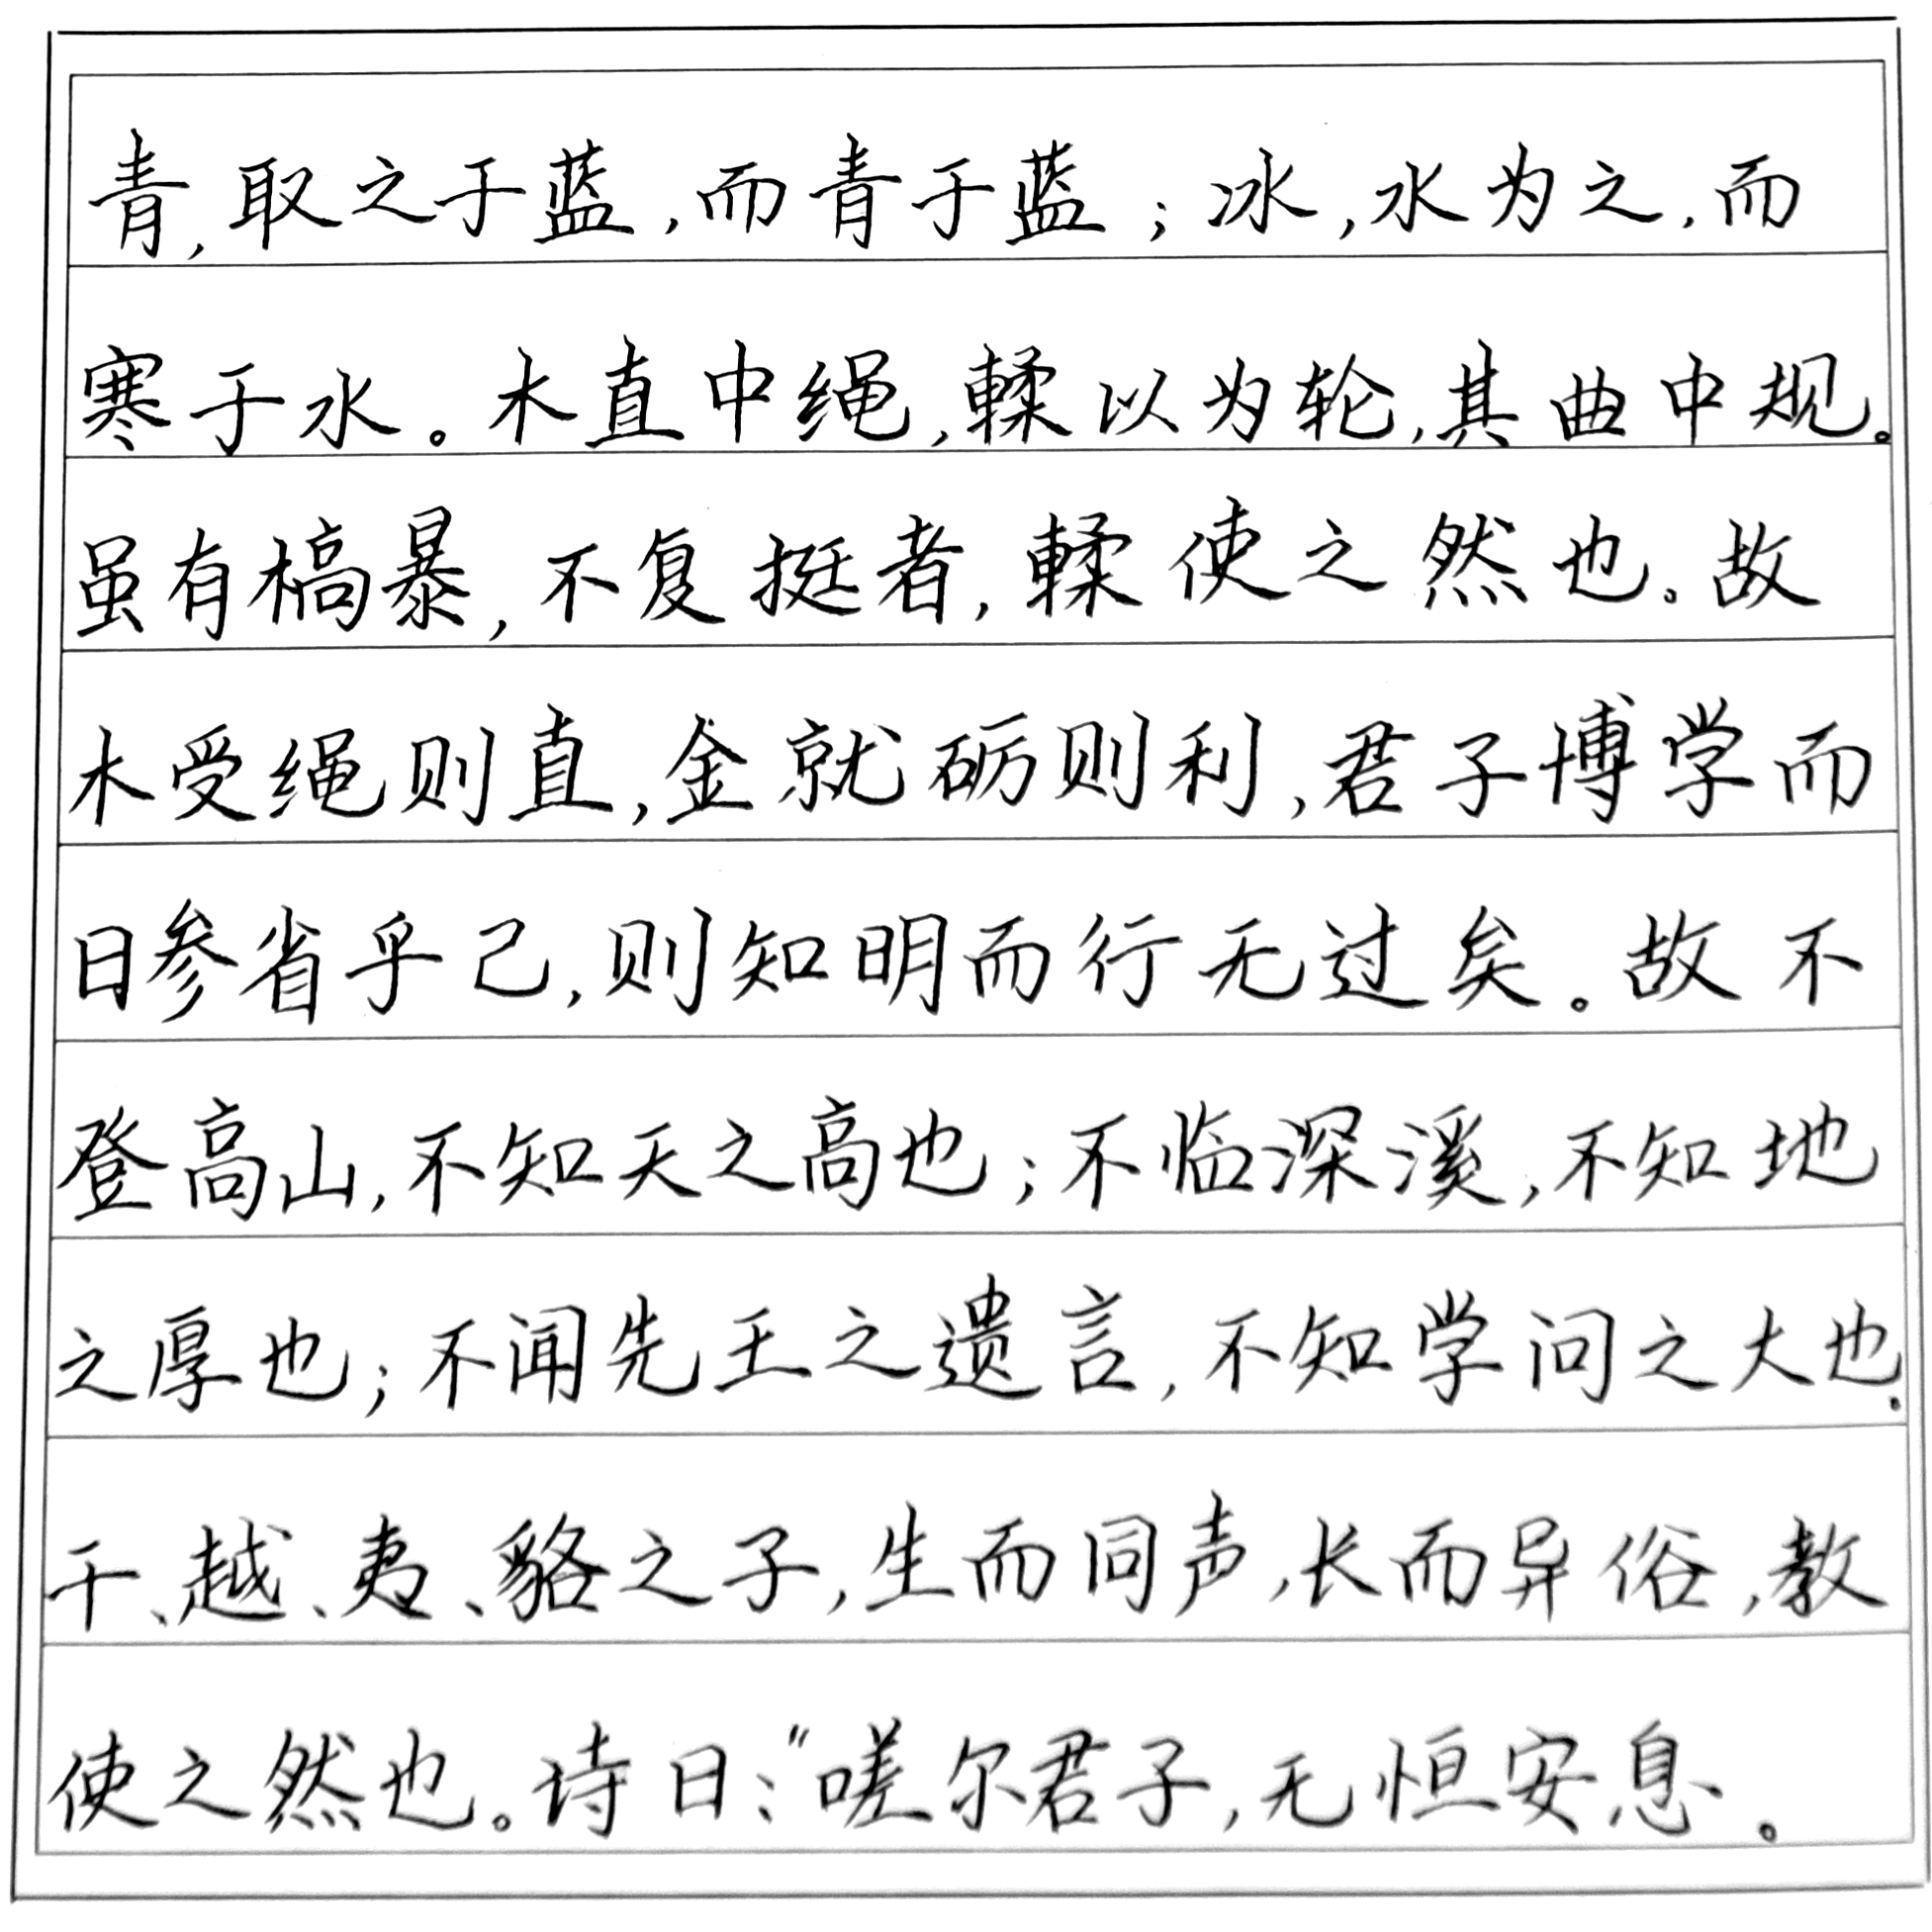 青,取之于蓝,而青于蓝;冰,水为之,而
寒于水。木直中绳,輮以为轮,其曲中规。
虽有槁暴,不复挺者,輮使之然也。故
木受绳则直,金就砺则利,君子博学而
日参省乎己,则知明而行无过矣。故不
登高山,不知天之高也;不临深溪,不知地
之厚也;不闻先王之遗言,不知学问之大也。
干、越、夷、貉之子,生而同声,长而异俗,教
使之然也。诗曰:“嗟尔君子,无恒安息。